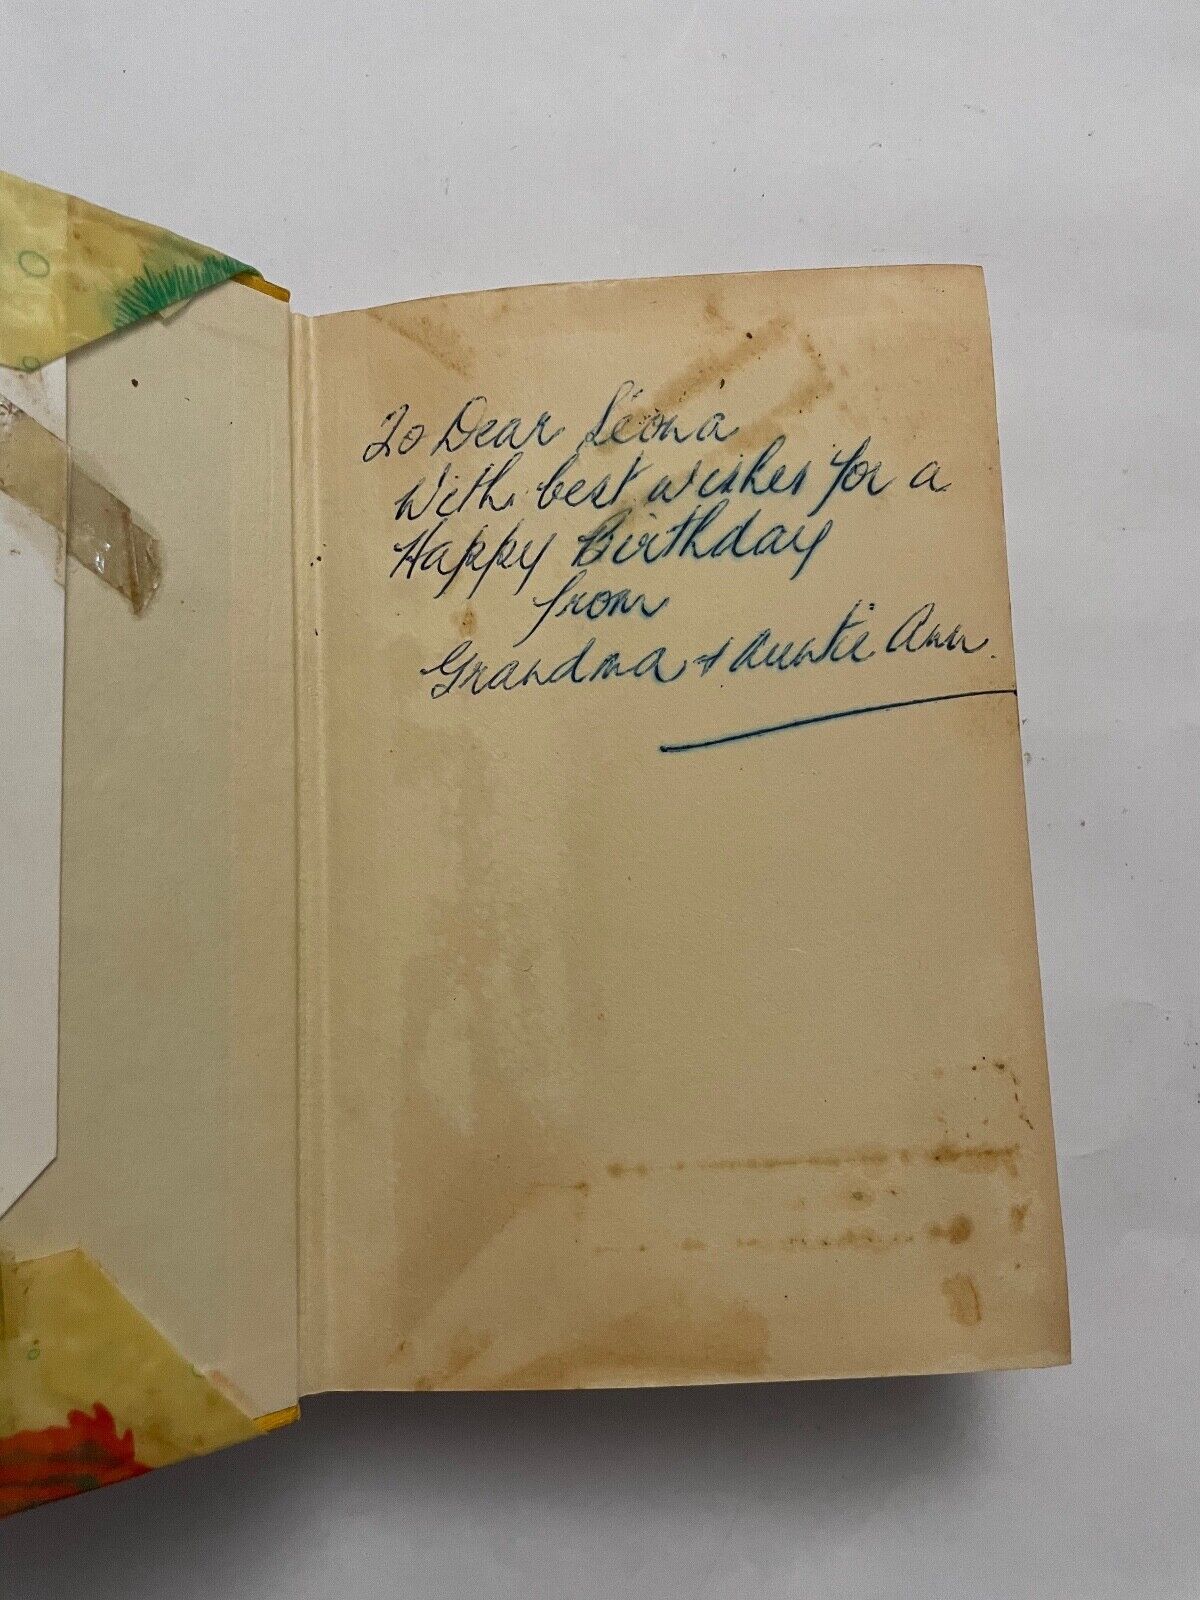 To Dear Leona
With best wishes for a
Happy Birthday
from
Grandma + Auntie Ann.